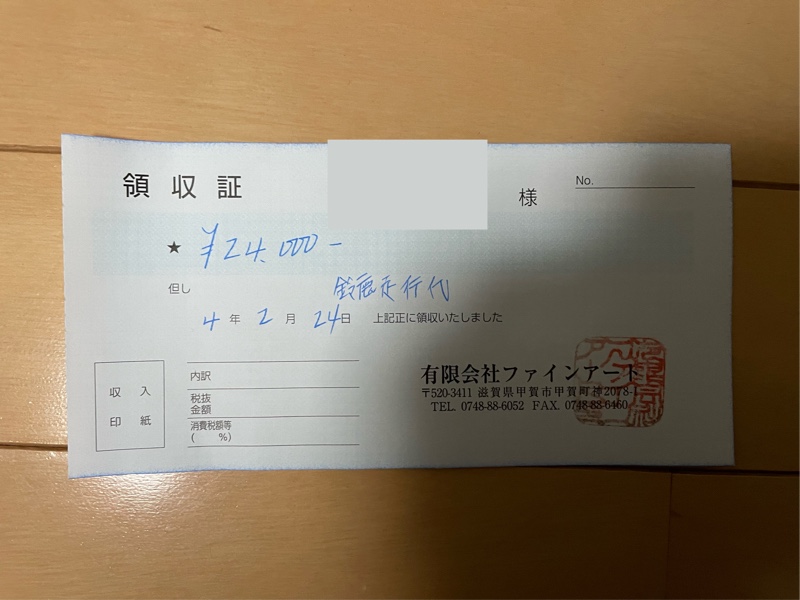 領収証
様
No.
★ ¥24,000-
但し 鈴鹿走行代
4年2月24日 上記正に領収いたしました
収入
印紙
内訳
税抜
金額
消費税額等
( %)
有限会社ファインアート
〒520-3411 滋賀県甲賀市甲賀町神2078-1
TEL. 0748-88-6052 FAX. 0748-88-6460